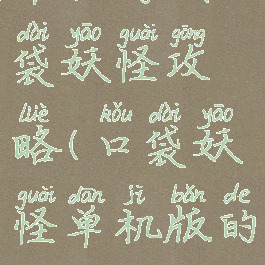 dài yāo guài gōng
袋妖怪攻
lüè kǒu dài yāo
略(口袋妖
guài dān jī bǎn de
怪单机版的